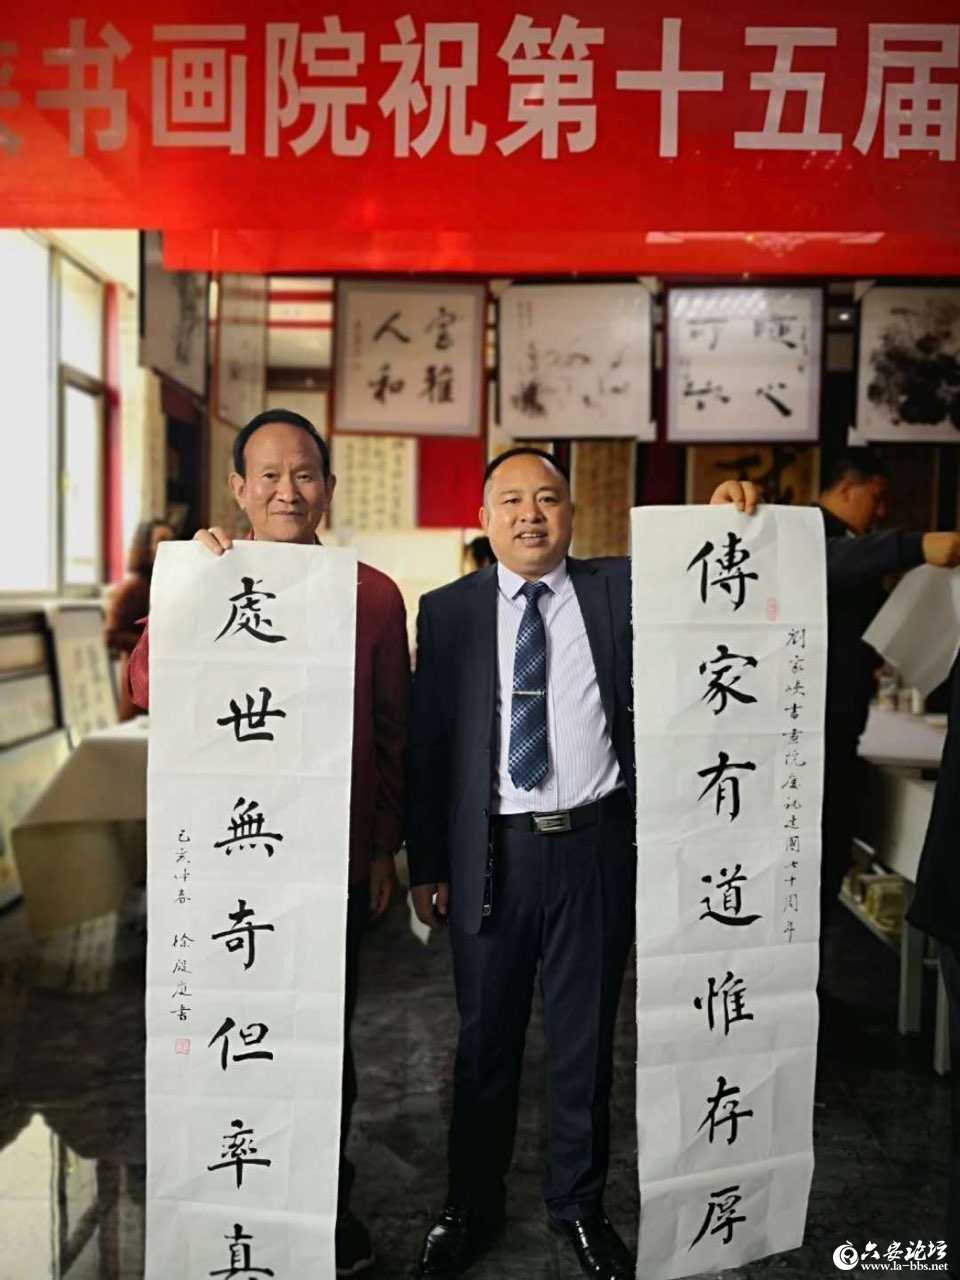 书画院祝第十五届
家雅
人和
順心
傳家有道惟存厚
劉家峡書畫院慶祝建國七十周年
處世無奇但率真
己亥仲春
徐殿庭書
六安论坛
www.la-bbs.net